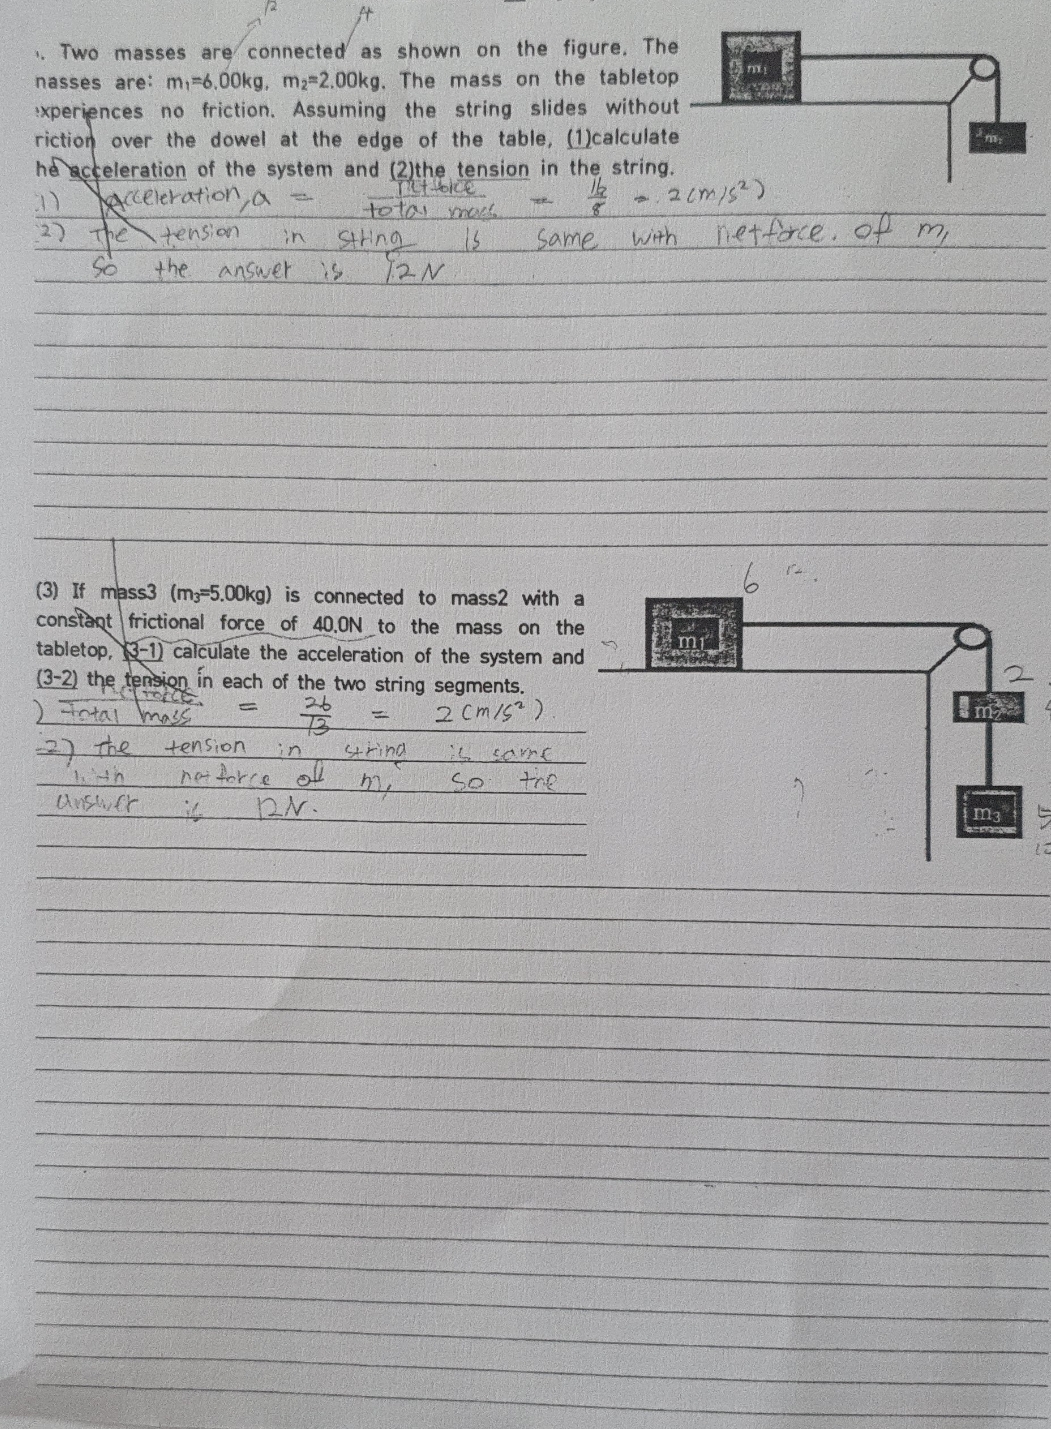 12 4
. Two masses are connected as shown on the figure. The
nasses are: m₁=6.00kg, m₂=2.00kg. The mass on the tabletop
experiences no friction. Assuming the string slides without
riction over the dowel at the edge of the table, (1)calculate
he acceleration of the system and (2)the tension in the string.
m₁
m₂
1) Acceleration, a = netforce / total mass = 16/8 = 2(m/s²)
2) The tension in string is same with netforce. of m₁
so the answer is 12N
(3) If mass3 (m₃=5.00kg) is connected to mass2 with a
constant frictional force of 40.0N to the mass on the
tabletop, (3-1) calculate the acceleration of the system and
(3-2) the tension in each of the two string segments.
6 12.
m₁
2
m₂
m₃
5
) netforce / Total mass = 26/13 = 2(m/s²).
2) the tension in string is same
with netforce of m₁ so the
answer is 12N.